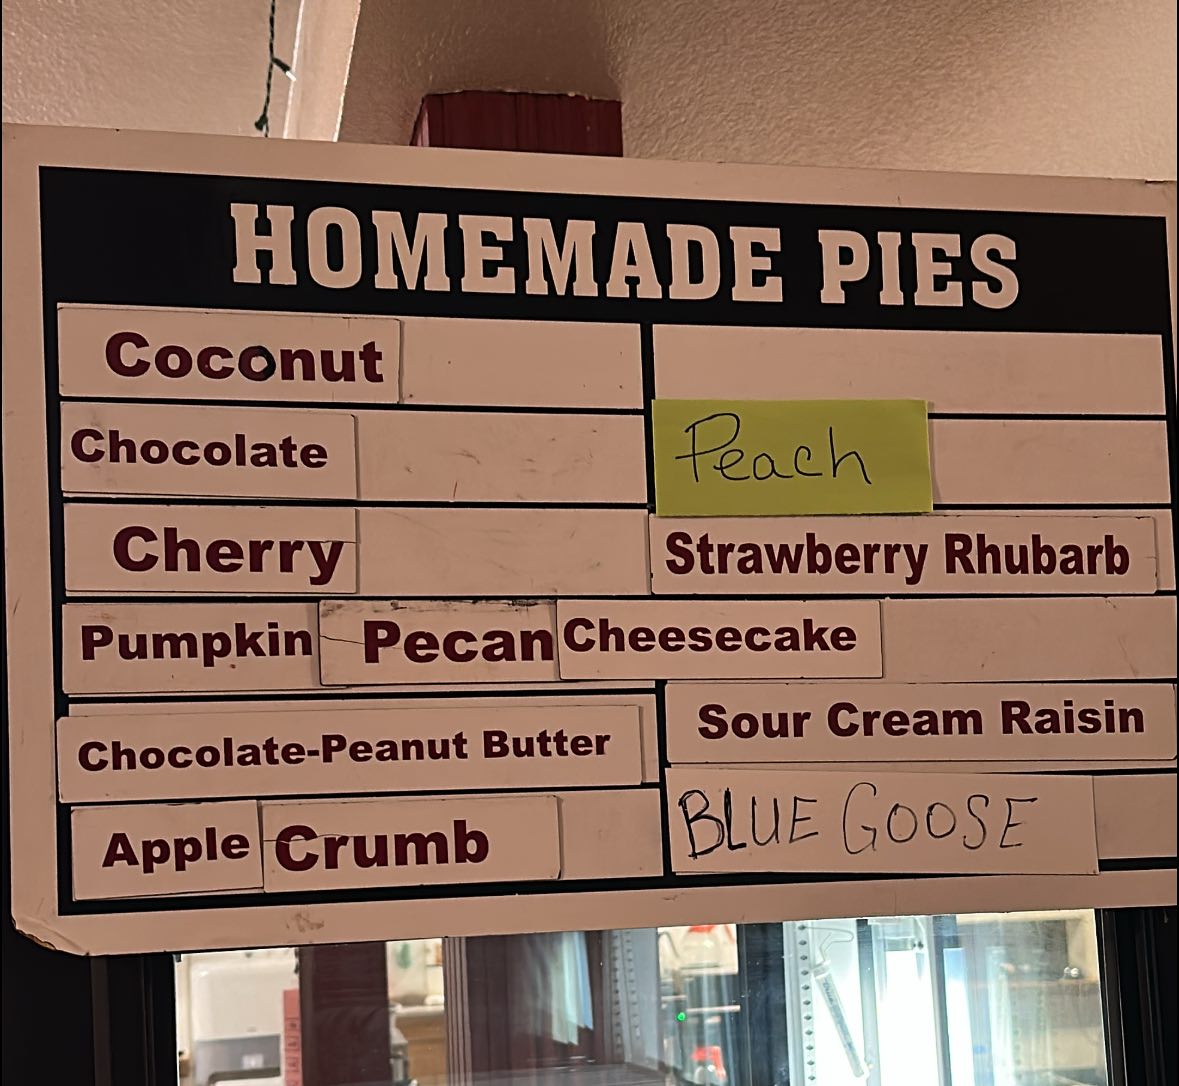 HOMEMADE PIES
Coconut
Chocolate
Peach
Cherry
Strawberry Rhubarb
Pumpkin Pecan Cheesecake
Chocolate-Peanut Butter
Sour Cream Raisin
Apple Crumb
BLUE GOOSE